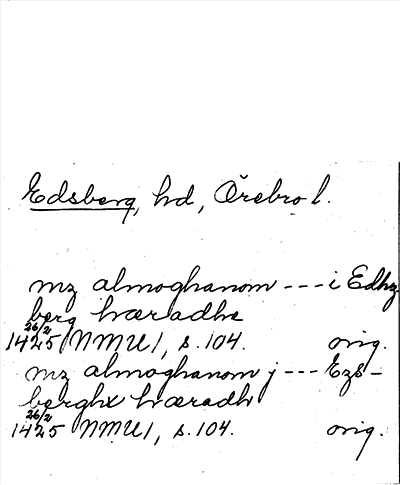 Edsberg, hd, Örebro l.
mz almoghanom --- i Edhz
berg hæradhe
26/2
1425 NMU 1, s. 104. orig.
mz almoghanom j --- Ezs-
berghx hæradh
26/2
1425 NMU 1, s. 104. orig.